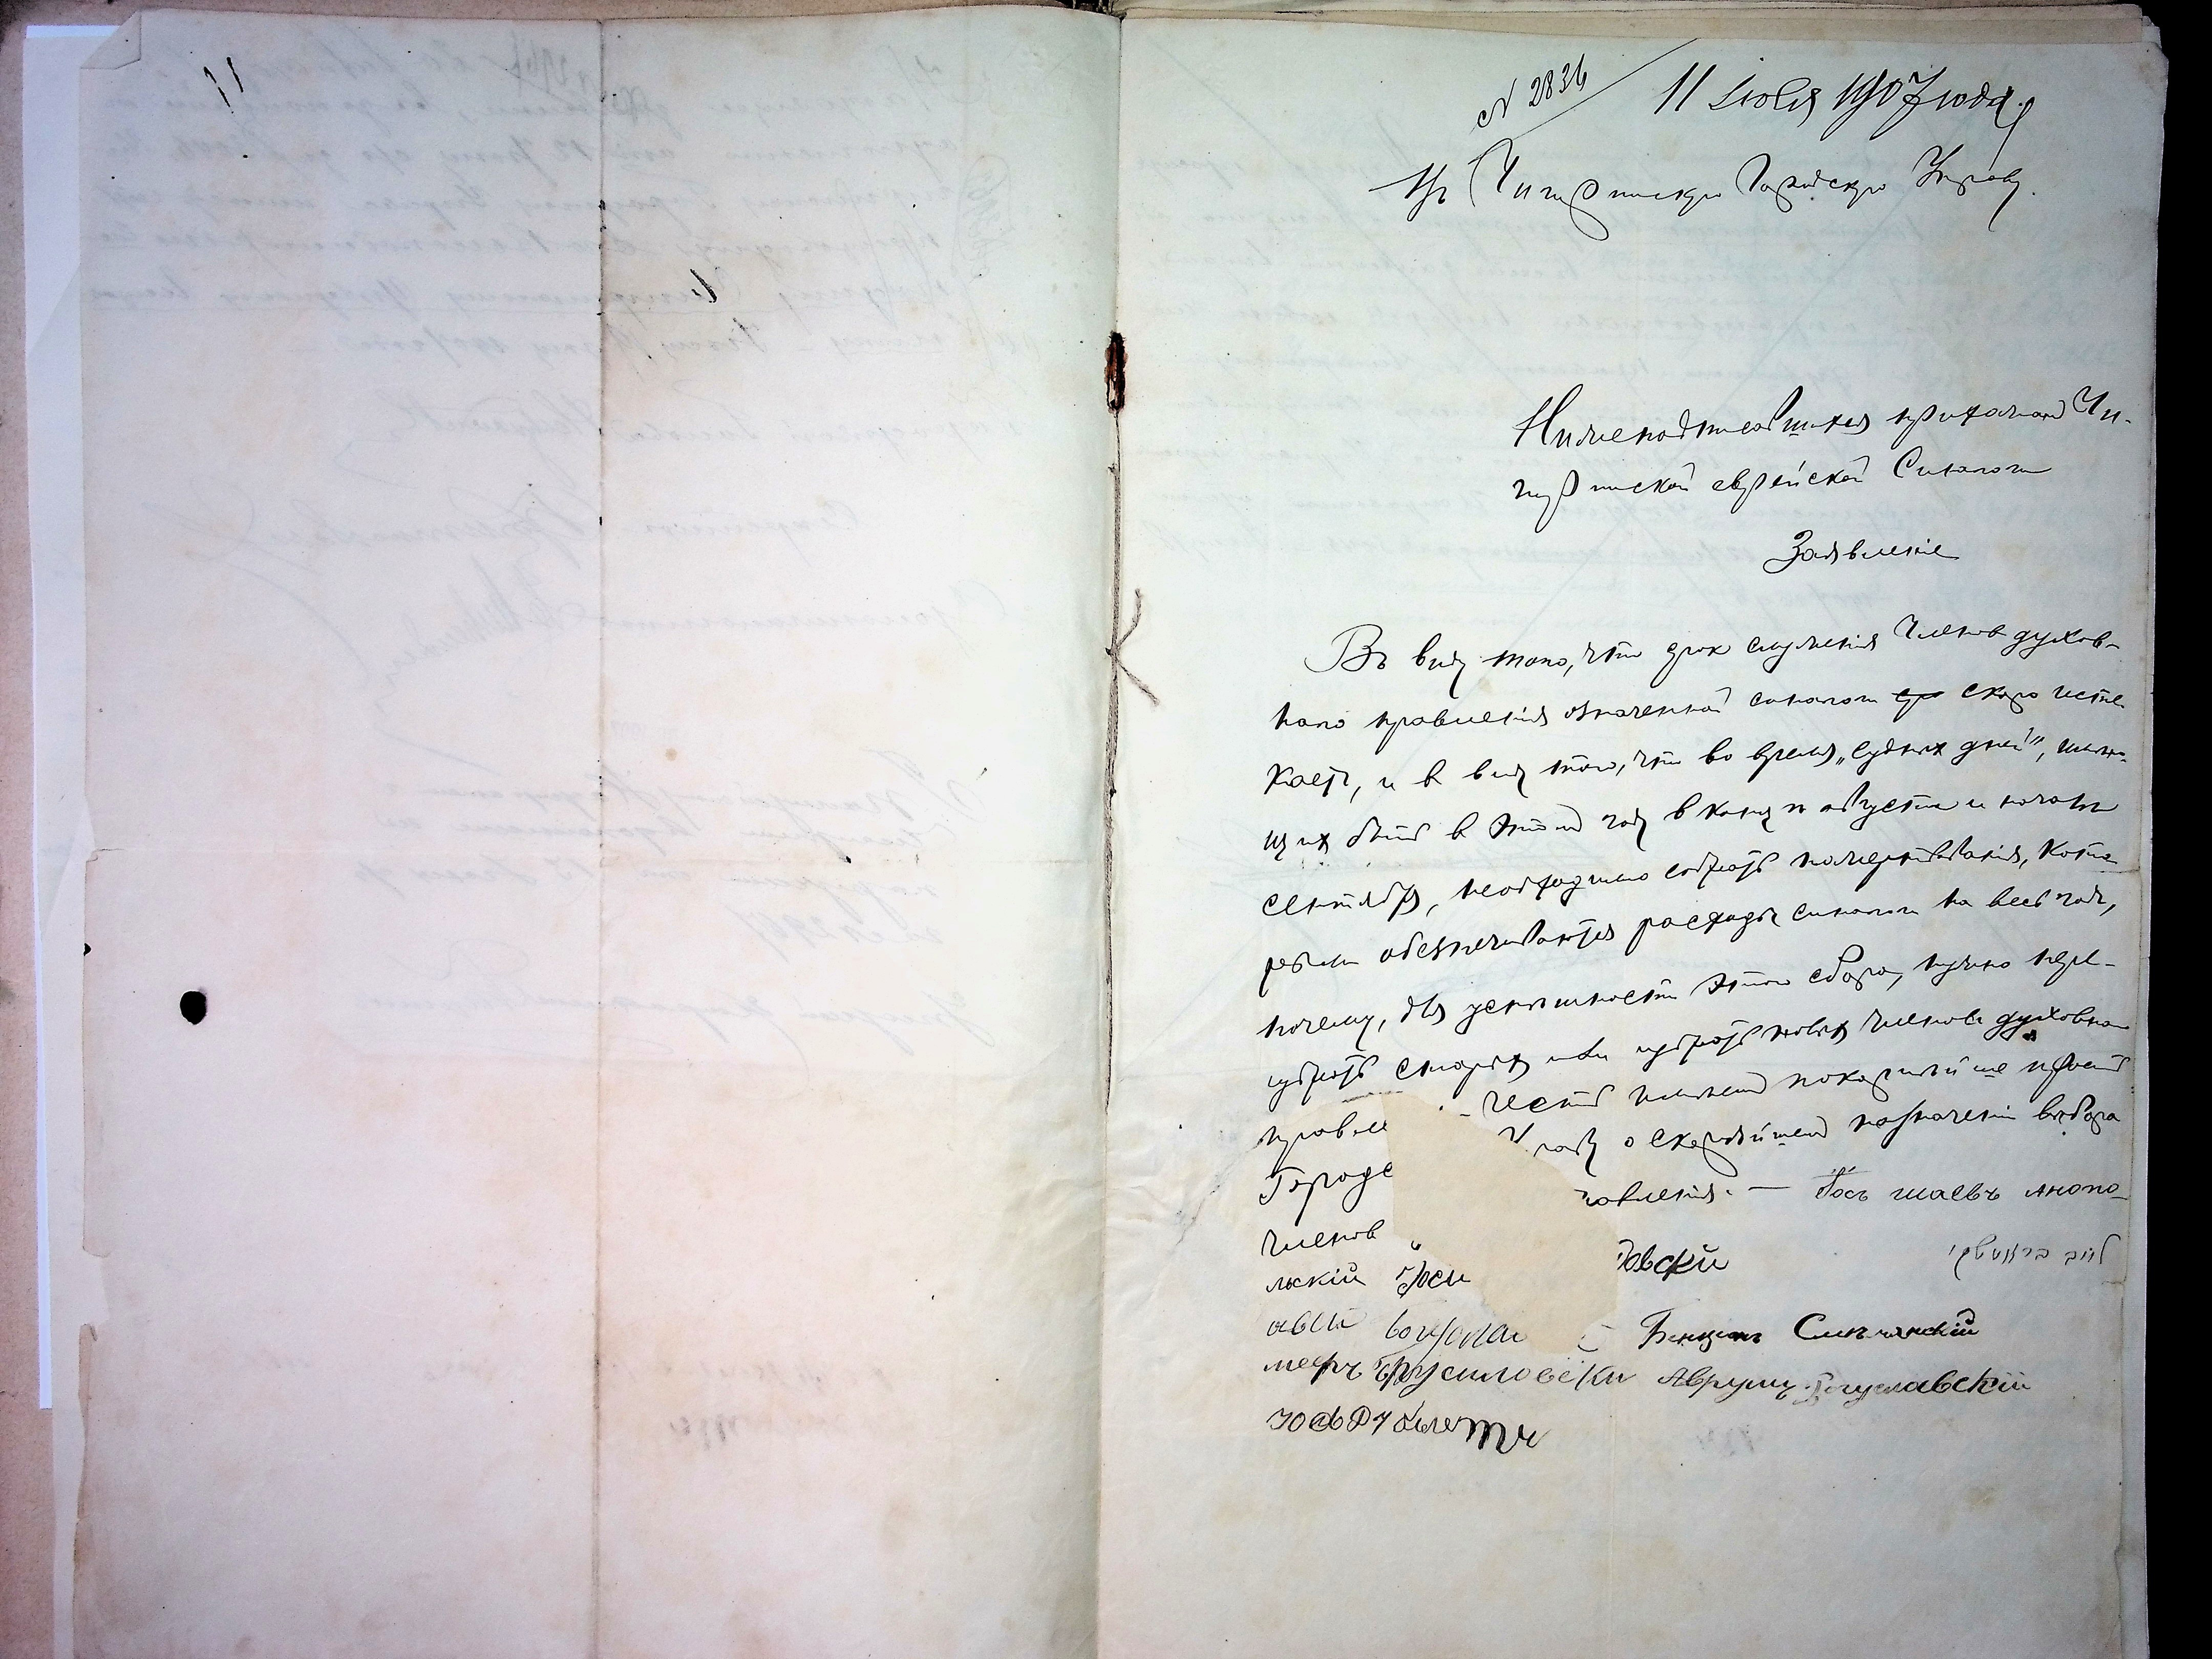 № 2836
11 Іюля 1907 года.
Въ Чигиринскую Городскую Управу.
Нижеподписавшихся прихожан Чи-
гиринской еврейской Синагоги
Заявленіе
Въ виду того, что срок служенія Членов духов-
наго правленія означенной синагоги скоро исте-
кает, и в виду того, что во время „судных дней", имею-
щих быть в этом году в конце августа и начале
сентября, необходимо собрать пожертвованія, кото-
рыми обезпечиваются расходы синагоги на весь год,
почему, для успешности этого сбора, нужно пере-
избрать старых или избрать новых членов духовнаго
правле честь имеем покорнейше просить
Городс праву о скорейшем назначеніи выбора
членов равленія. — шаевъ
льскій Іоси овскій
Бенціон Смелянскій
меръ Брусиловски Аврумъ Богуславскій